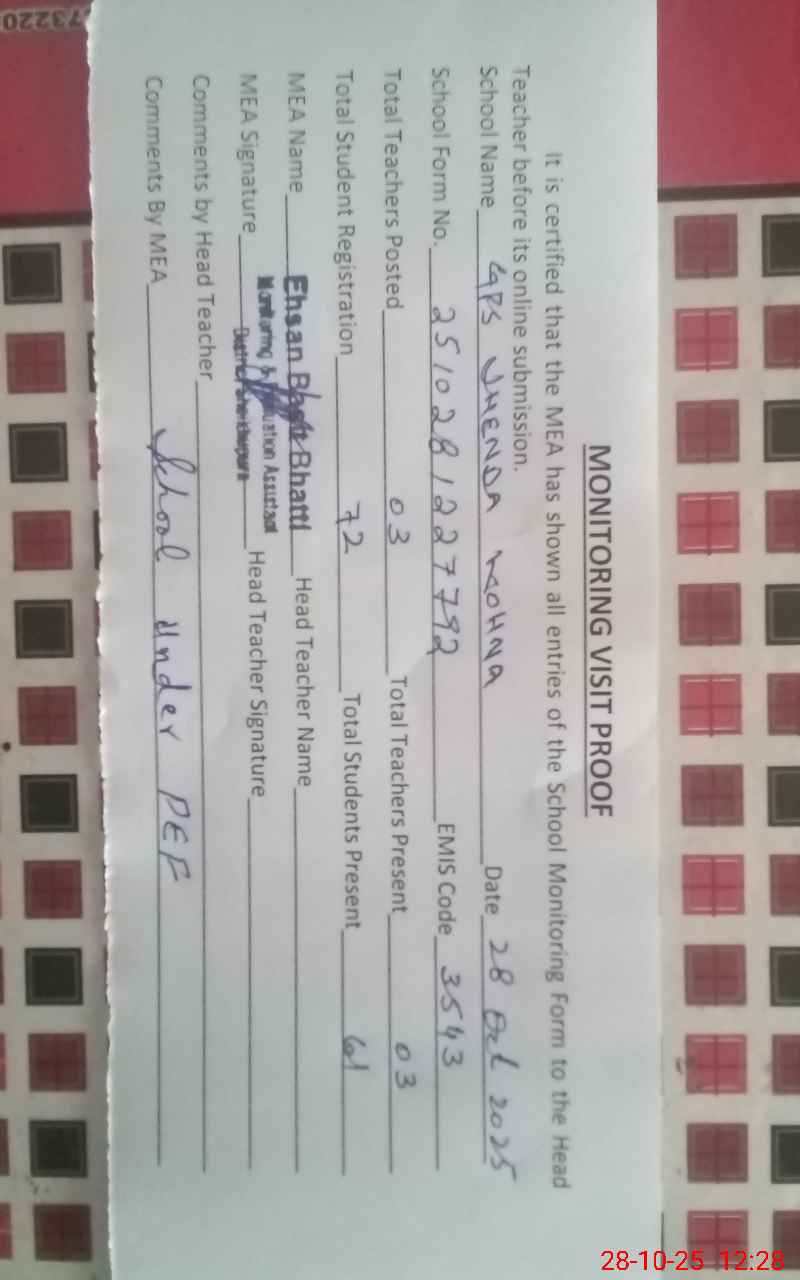 MONITORING VISIT PROOF
It is certified that the MEA has shown all entries of the School Monitoring Form to the Head
Teacher before its online submission.
School Name GPS JHENDA MOHNA Date 28 Oct 2025
School Form No. 251028122 7792 EMIS Code 3543
Total Teachers Posted 03 Total Teachers Present 03
Total Student Registration 72 Total Students Present 61
MEA Name Ehsan Bhatti Head Teacher Name
Monitoring Assistant
MEA Signature District Head Teacher Signature
Comments by Head Teacher
Comments By MEA School under PEF
73220
28-10-25 12:28